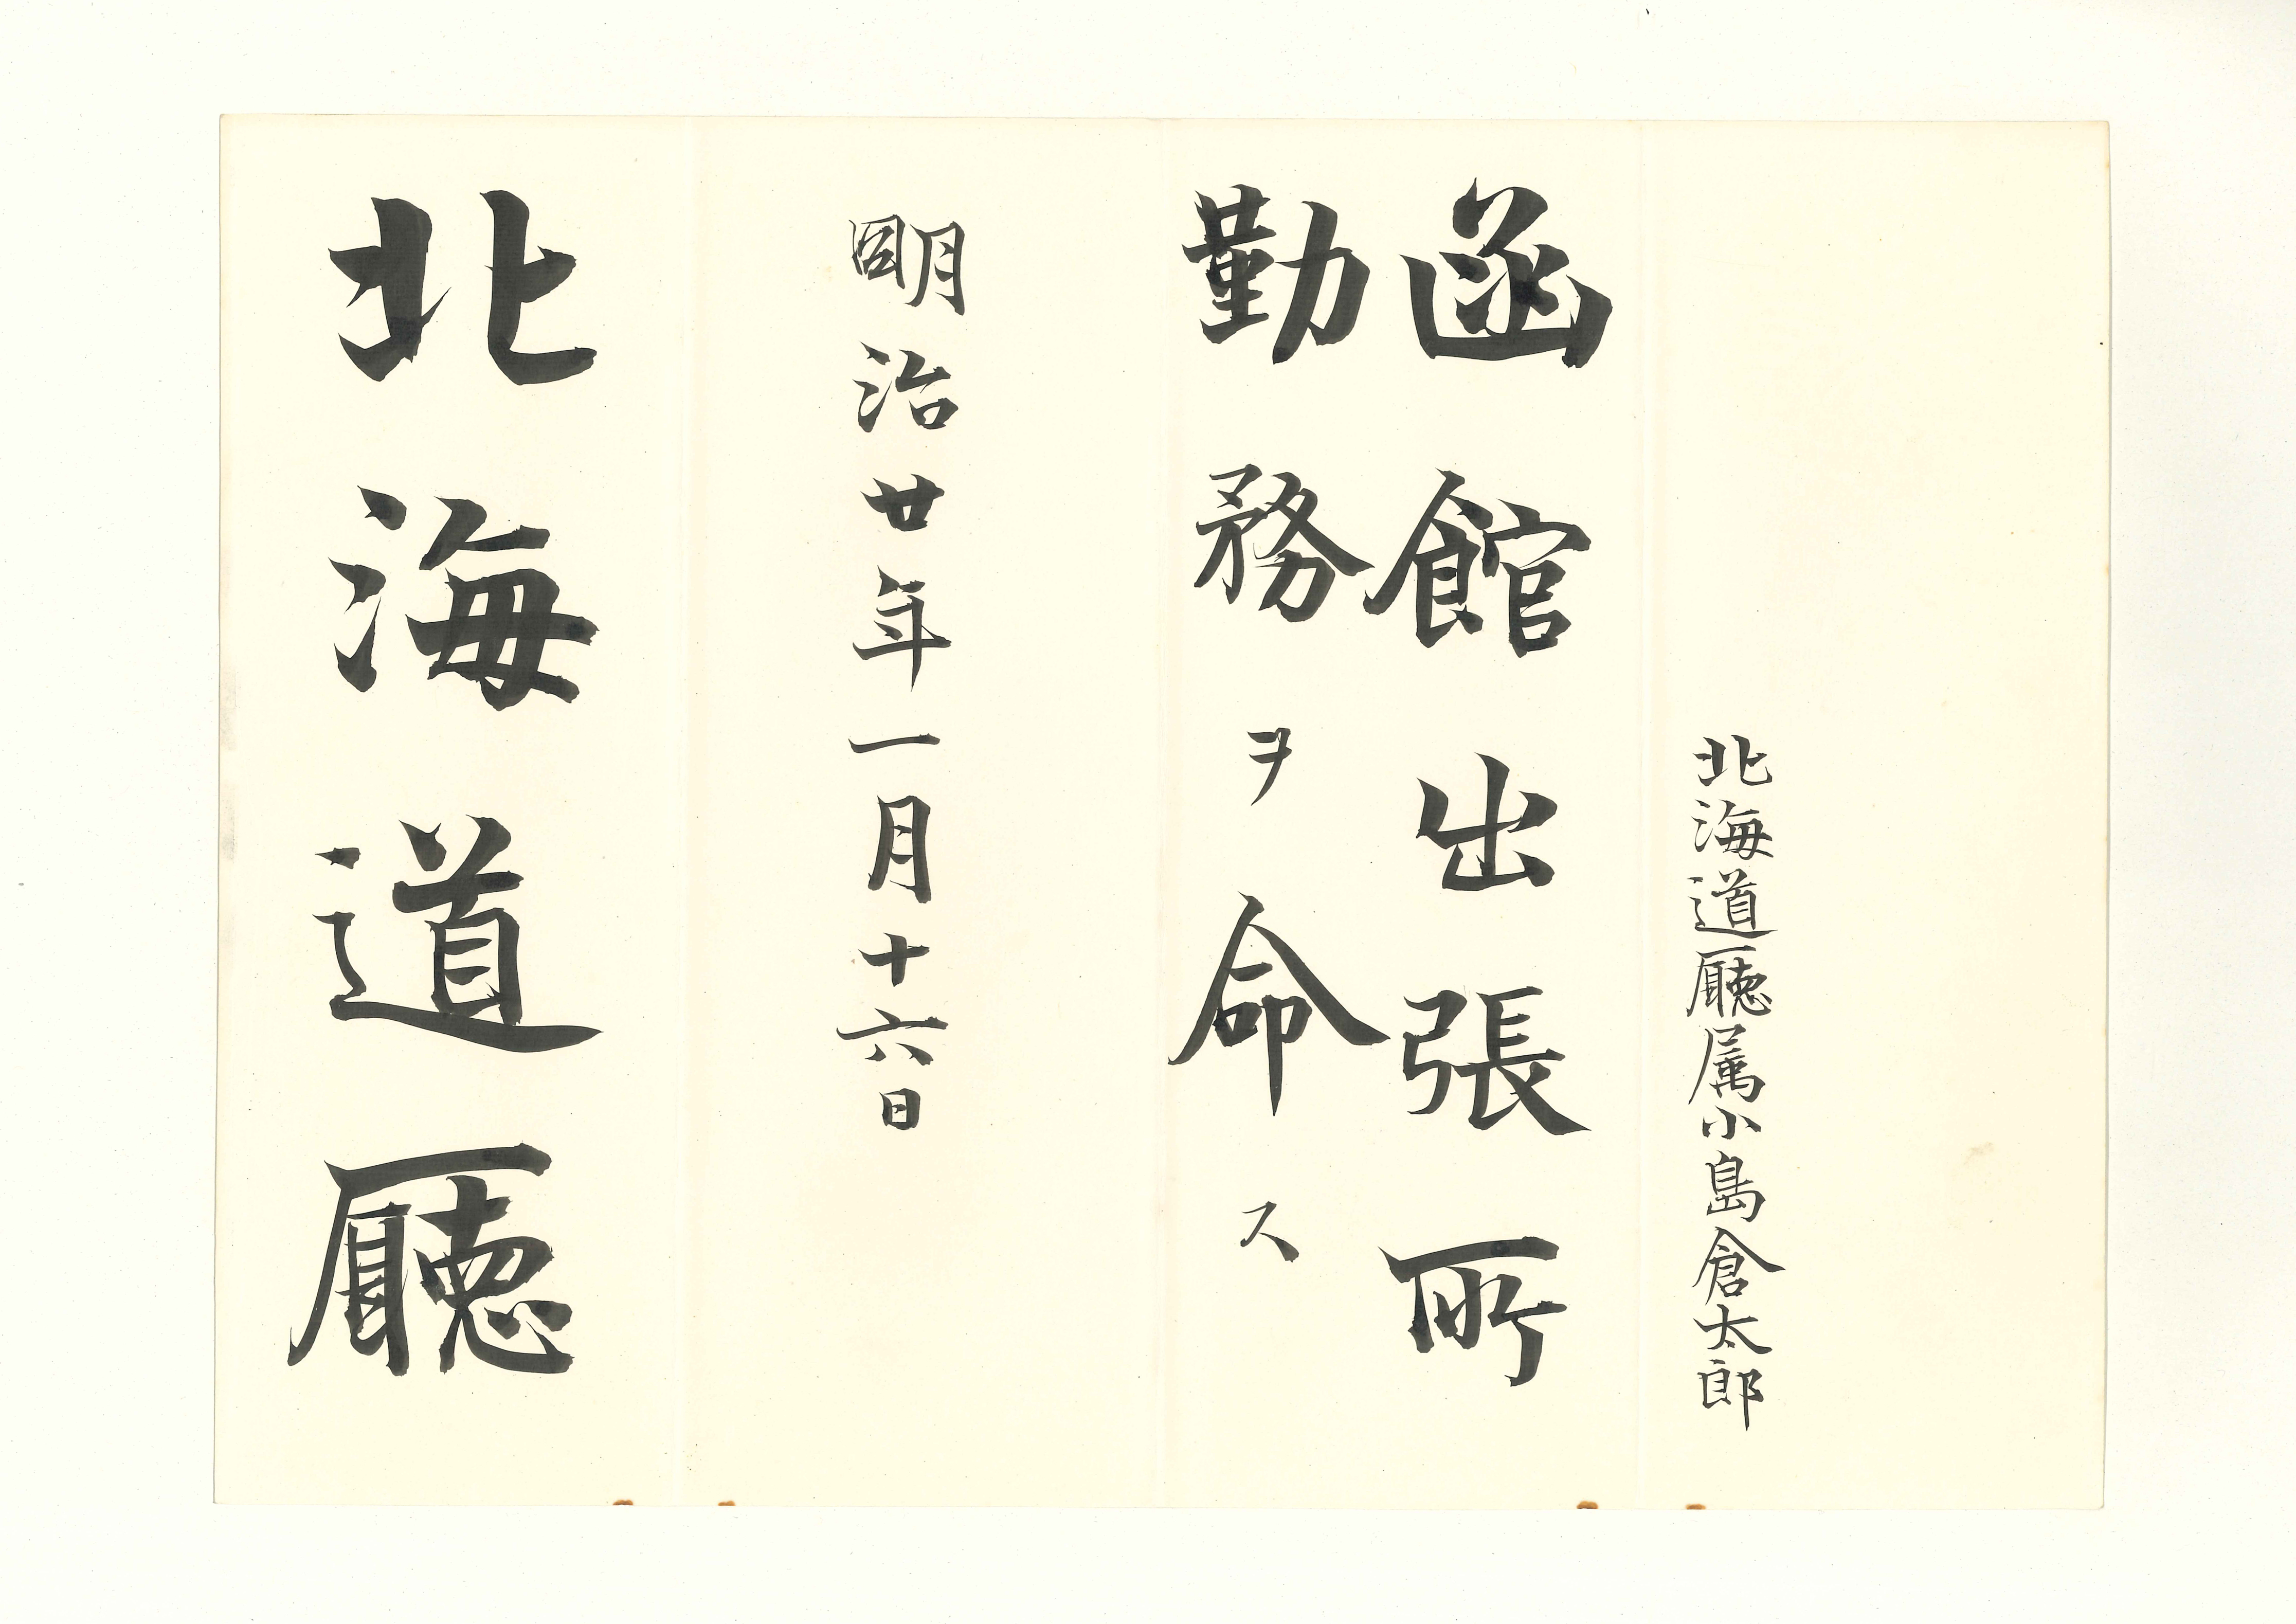 北海道廳属小島倉太郎
函館出張所
勤務ヲ命ス
明治廿年一月十六日
北海道廳